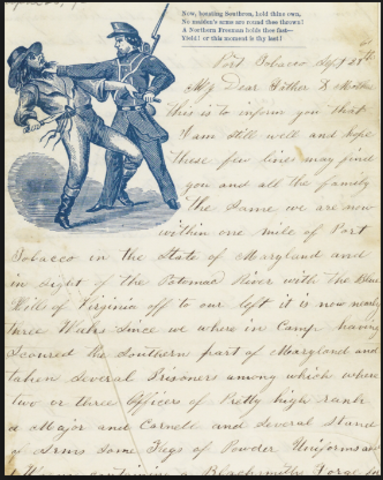 Now, boasting Southron, hold thine own,
No maiden's arms are round thee thrown!
A Northern Freeman holds thee fast—
Yield! or this moment is thy last!
Port Tobacco Sept 28th
My Dear Father & Mother
this is to inform you that
I am still well and hope
these few lines may find
you and all the family
the same we are now
within one mile of Port
Tobacco in the State of Maryland and
in sight of the Potomac River with the Blue
Hills of Virginia off to our left it is now nearly
three Weeks since we where in Camp having
Scoured the southern part of Maryland and
taken several Prisoners among which where
two or three Officers of Pretty high rank
a Major and Cornell and several Stand
of Arms some Kegs of Powder Uniforms and
a Blacksmiths Forge